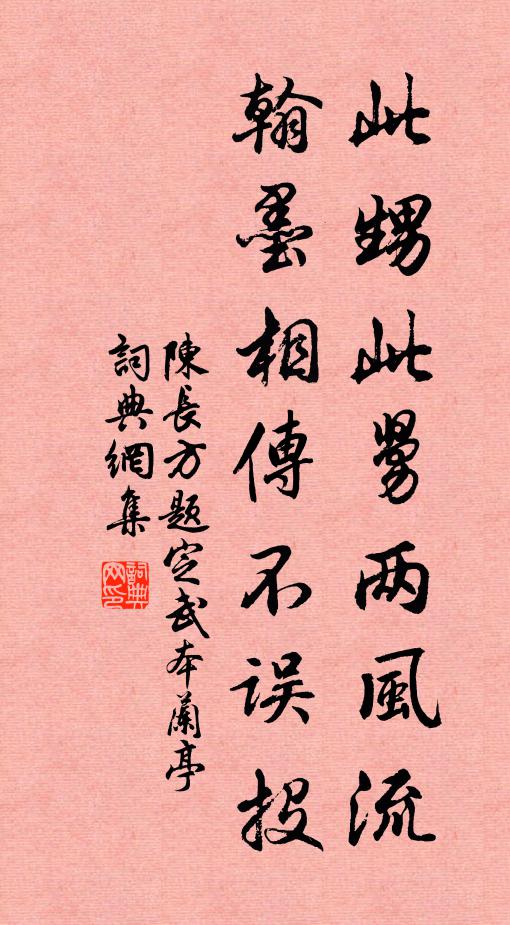 此甥此舅两風流
翰墨相傳不误投
陳長方題定武本蘭亭
詞典網集
詞典网印